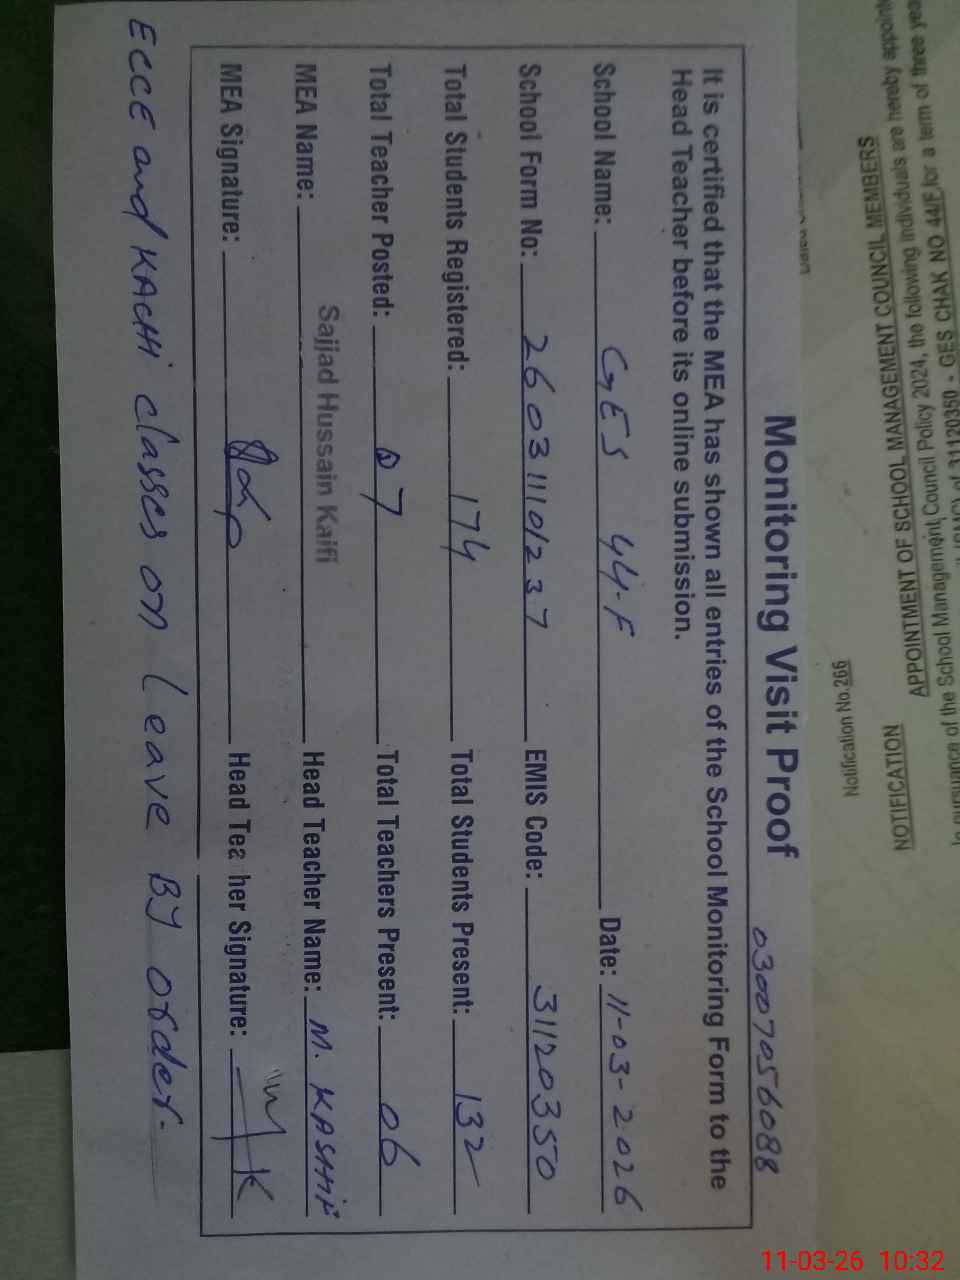 Notification No.266
NOTIFICATION
APPOINTMENT OF SCHOOL MANAGEMENT COUNCIL MEMBERS
of the School Management Council Policy 2024, the following individuals are hereby
31120350 - GES CHAK NO 44/F for a term of three
Monitoring Visit Proof 03007056088
It is certified that the MEA has shown all entries of the School Monitoring Form to the
Head Teacher before its online submission.
School Name: GES 44-F Date: 11-03-2026
School Form No: 260311101237 EMIS Code: 31120350
Total Students Registered: 174 Total Students Present: 132
Total Teacher Posted: 7 Total Teachers Present: 06
MEA Name: Sajjad Hussain Kaifi Head Teacher Name: M. KASHIF
MEA Signature: Head Tea her Signature:
ECCE and KACHI classes on Leave BY order.
11-03-26 10:32